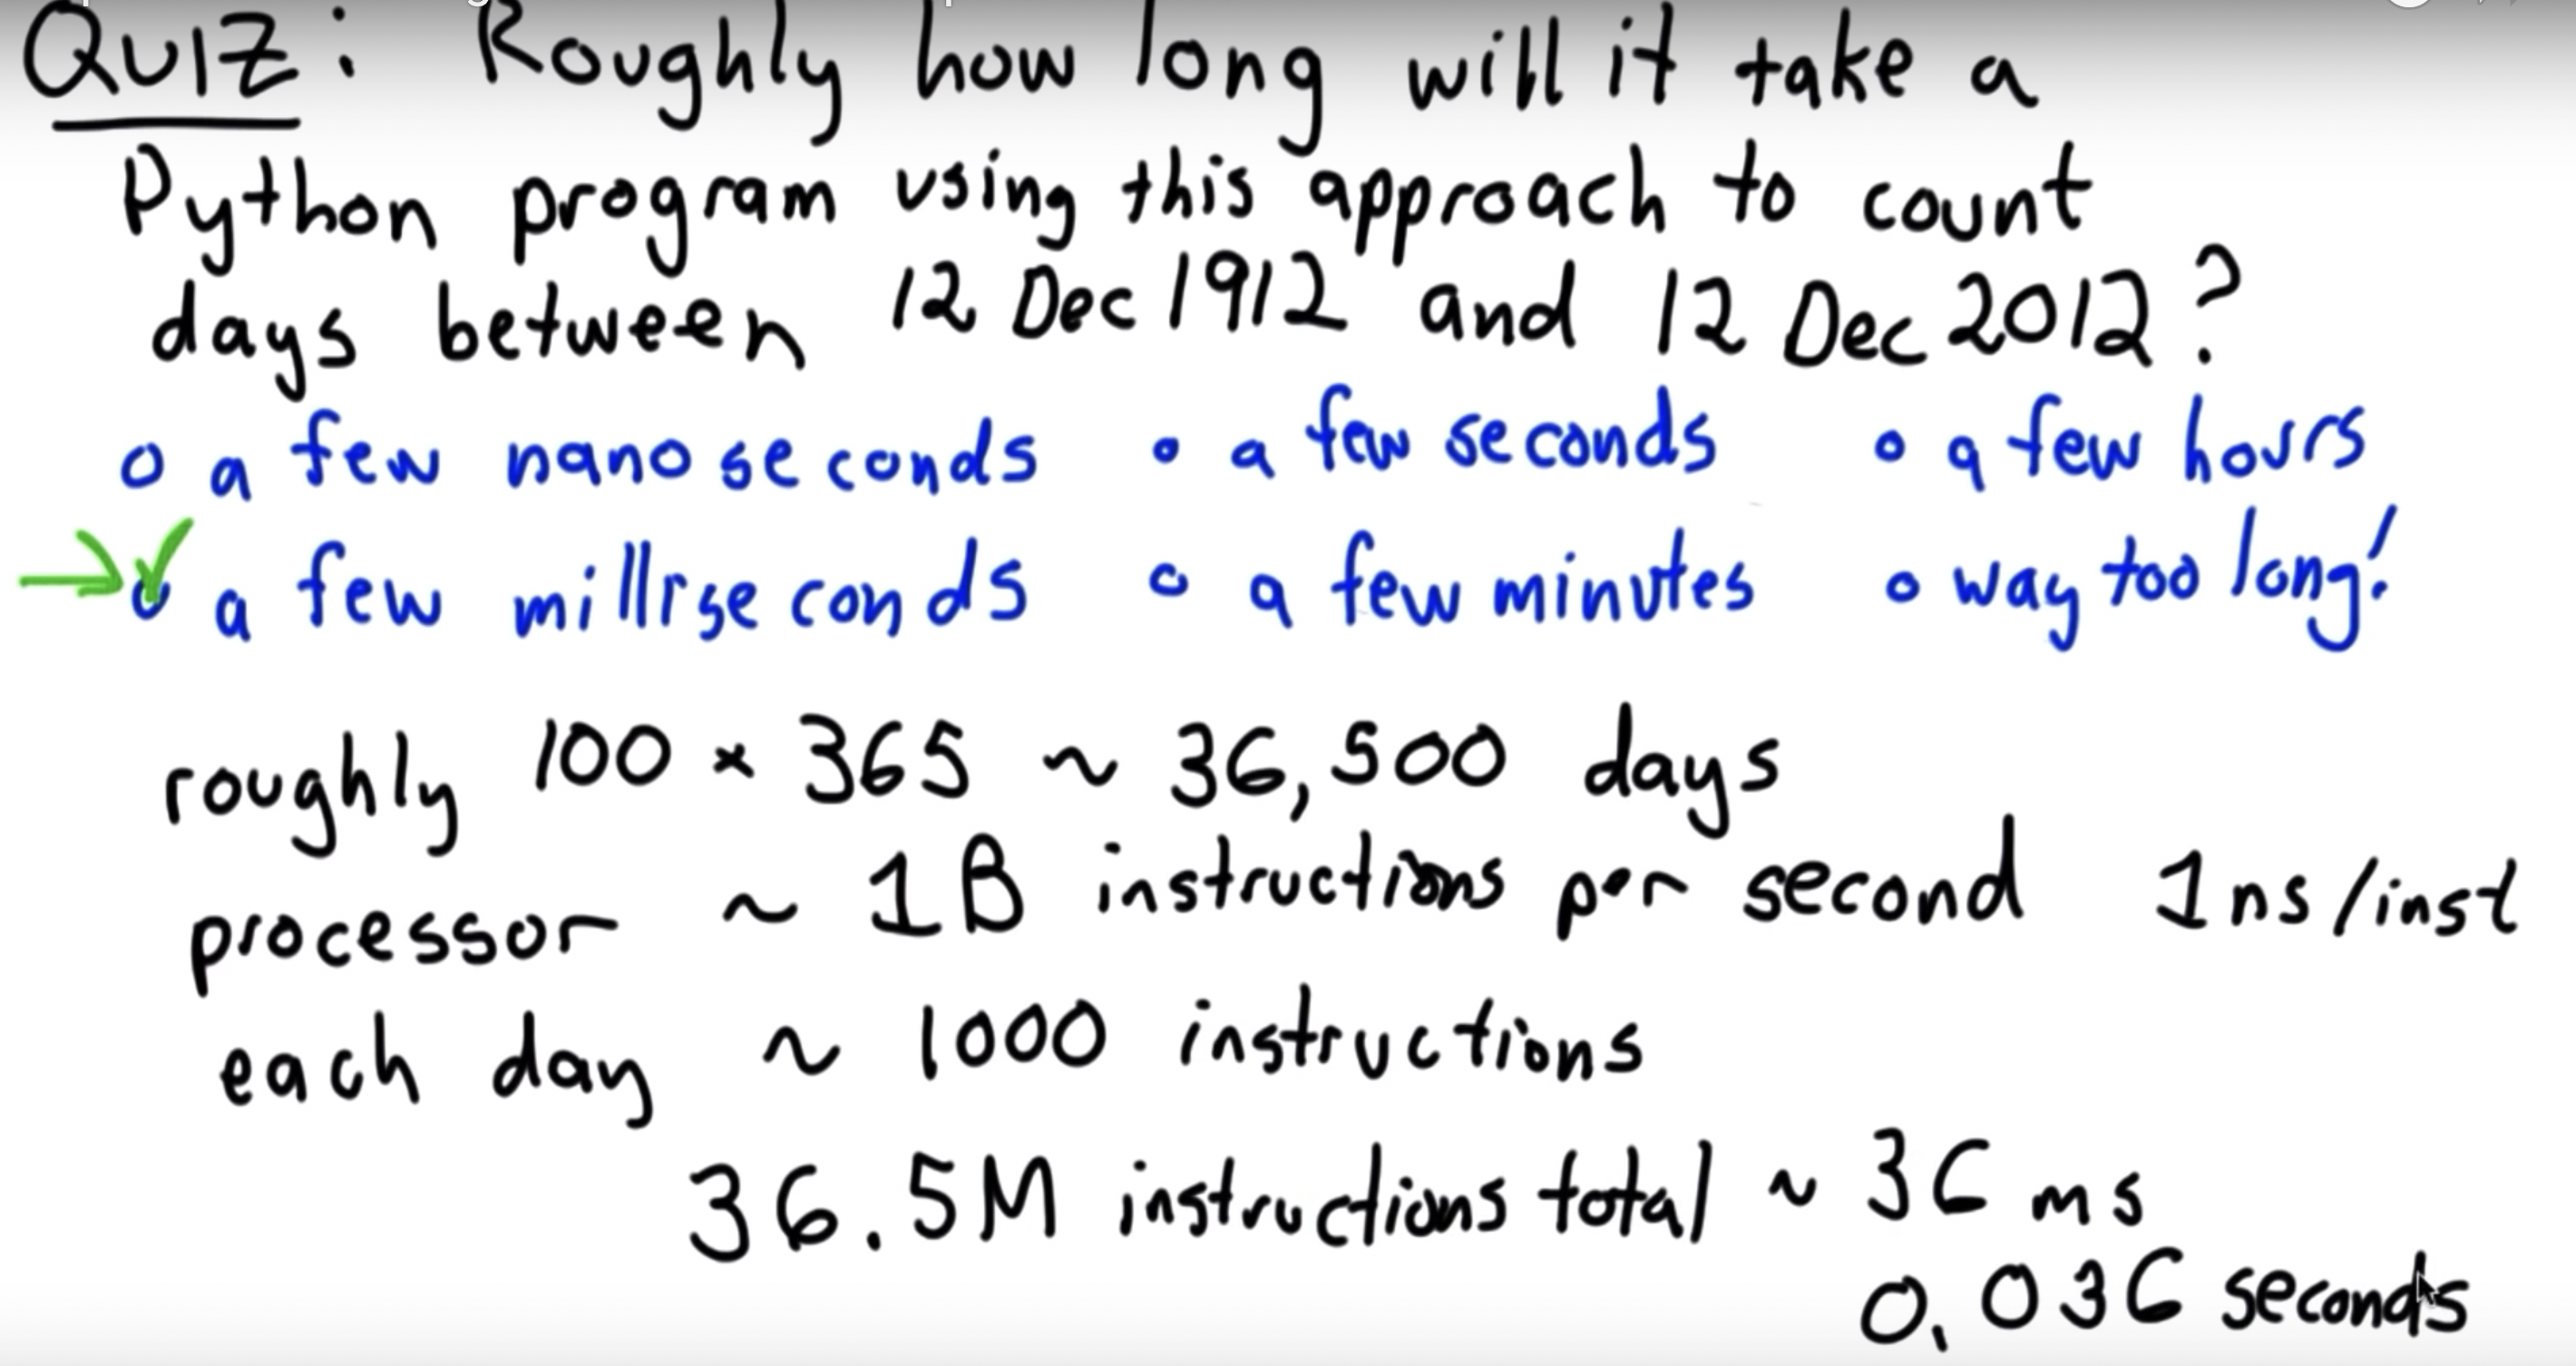 Quiz: Roughly how long will it take a
Python program using this approach to count
days between 12 Dec 1912 and 12 Dec 2012?
o a few nanoseconds o a few seconds o a few hours
→ ✓ o a few milliseconds o a few minutes o way too long!
roughly 100 * 365 ~ 36,500 days
processor ~ 1B instructions per second 1ns/inst
each day ~ 1000 instructions
36.5M instructions total ~ 36 ms
0.036 seconds